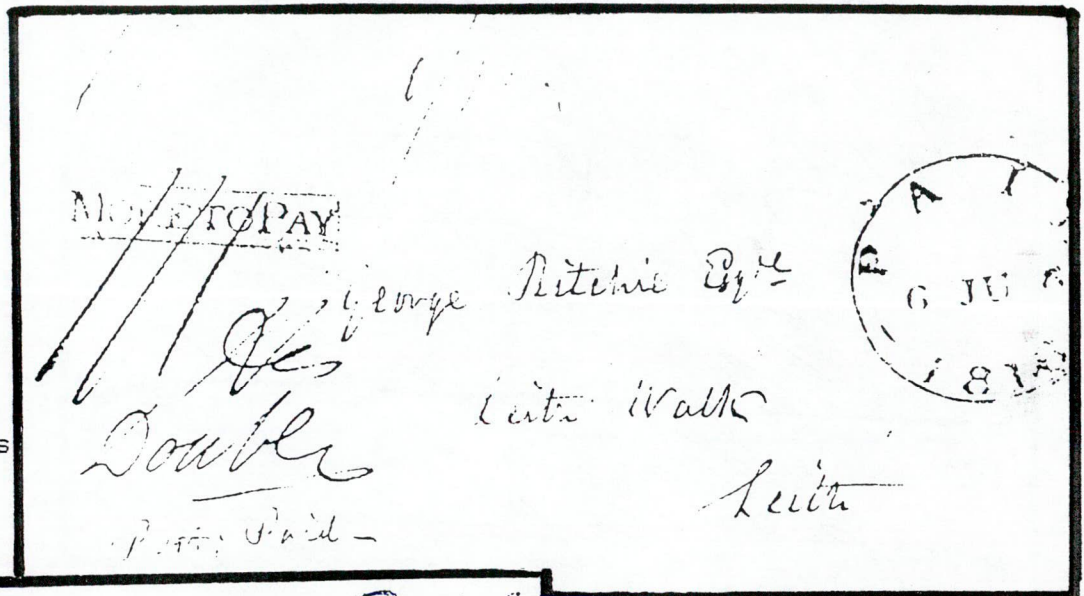 MORE TO PAY
PAI
6 JU 6
18
George Ritchie Esqre
Leith Walk
Double
Leith
Paid
s